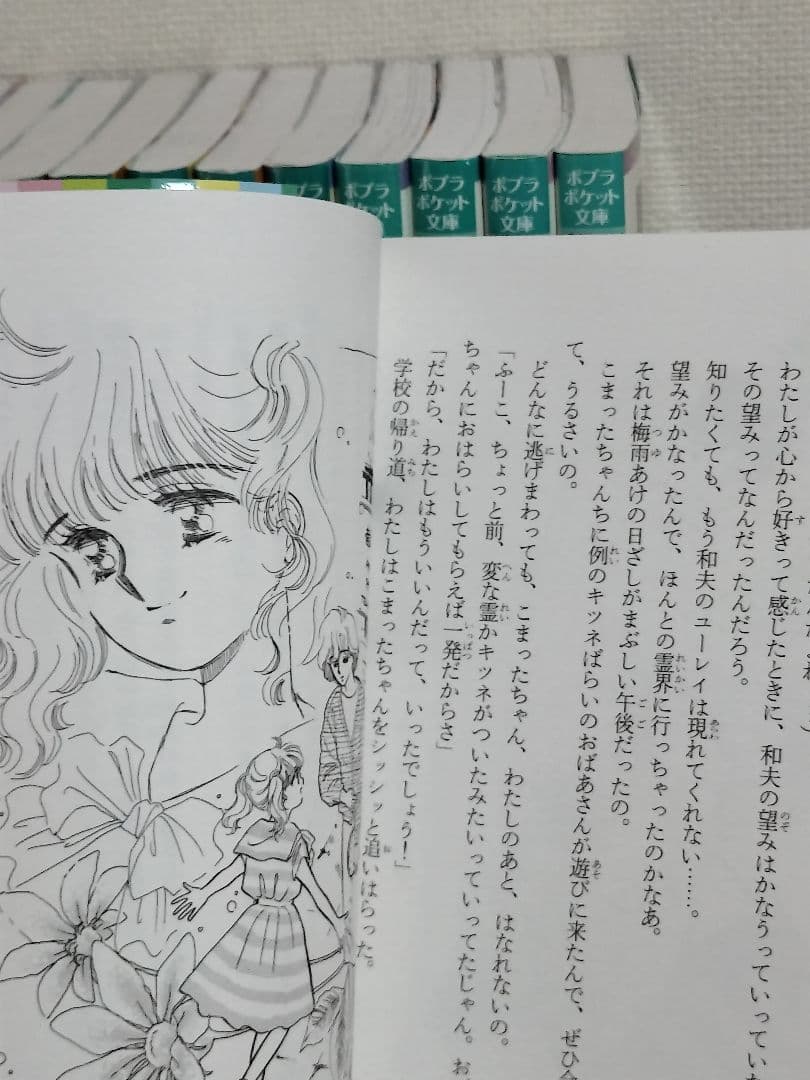 ポプラ
ポケット
文庫
ポプラ
ポケット
文庫
ポプラ
ポケット
文庫
ポプラ
ポケット
文庫
わたしが心から好きって感じたときに、和夫の望みはかなうっていっていた
その望みってなんだったんだろう。
知りたくても、もう和夫のユーレイは現れてくれない……。
望みがかなったんで、ほんとの霊界に行っちゃったのかなあ。
それは梅雨あけの日ざしがまぶしい午後だったの。
こまったちゃんちに例のキツネばらいのおばあさんが遊びに来たんで、ぜひ
て、うるさいの。
どんなに逃げまわっても、こまったちゃん、わたしのあと、はなれないの。
「ふーこ、ちょっと前、変な霊かキツネがついたみたいっていってたじゃん。お
ちゃんにおはらいしてもらえば一発だからさ」
「だから、わたしはもういいんだって、いったでしょう！」
学校の帰り道、わたしはこまったちゃんをシッシッと追いはらった。